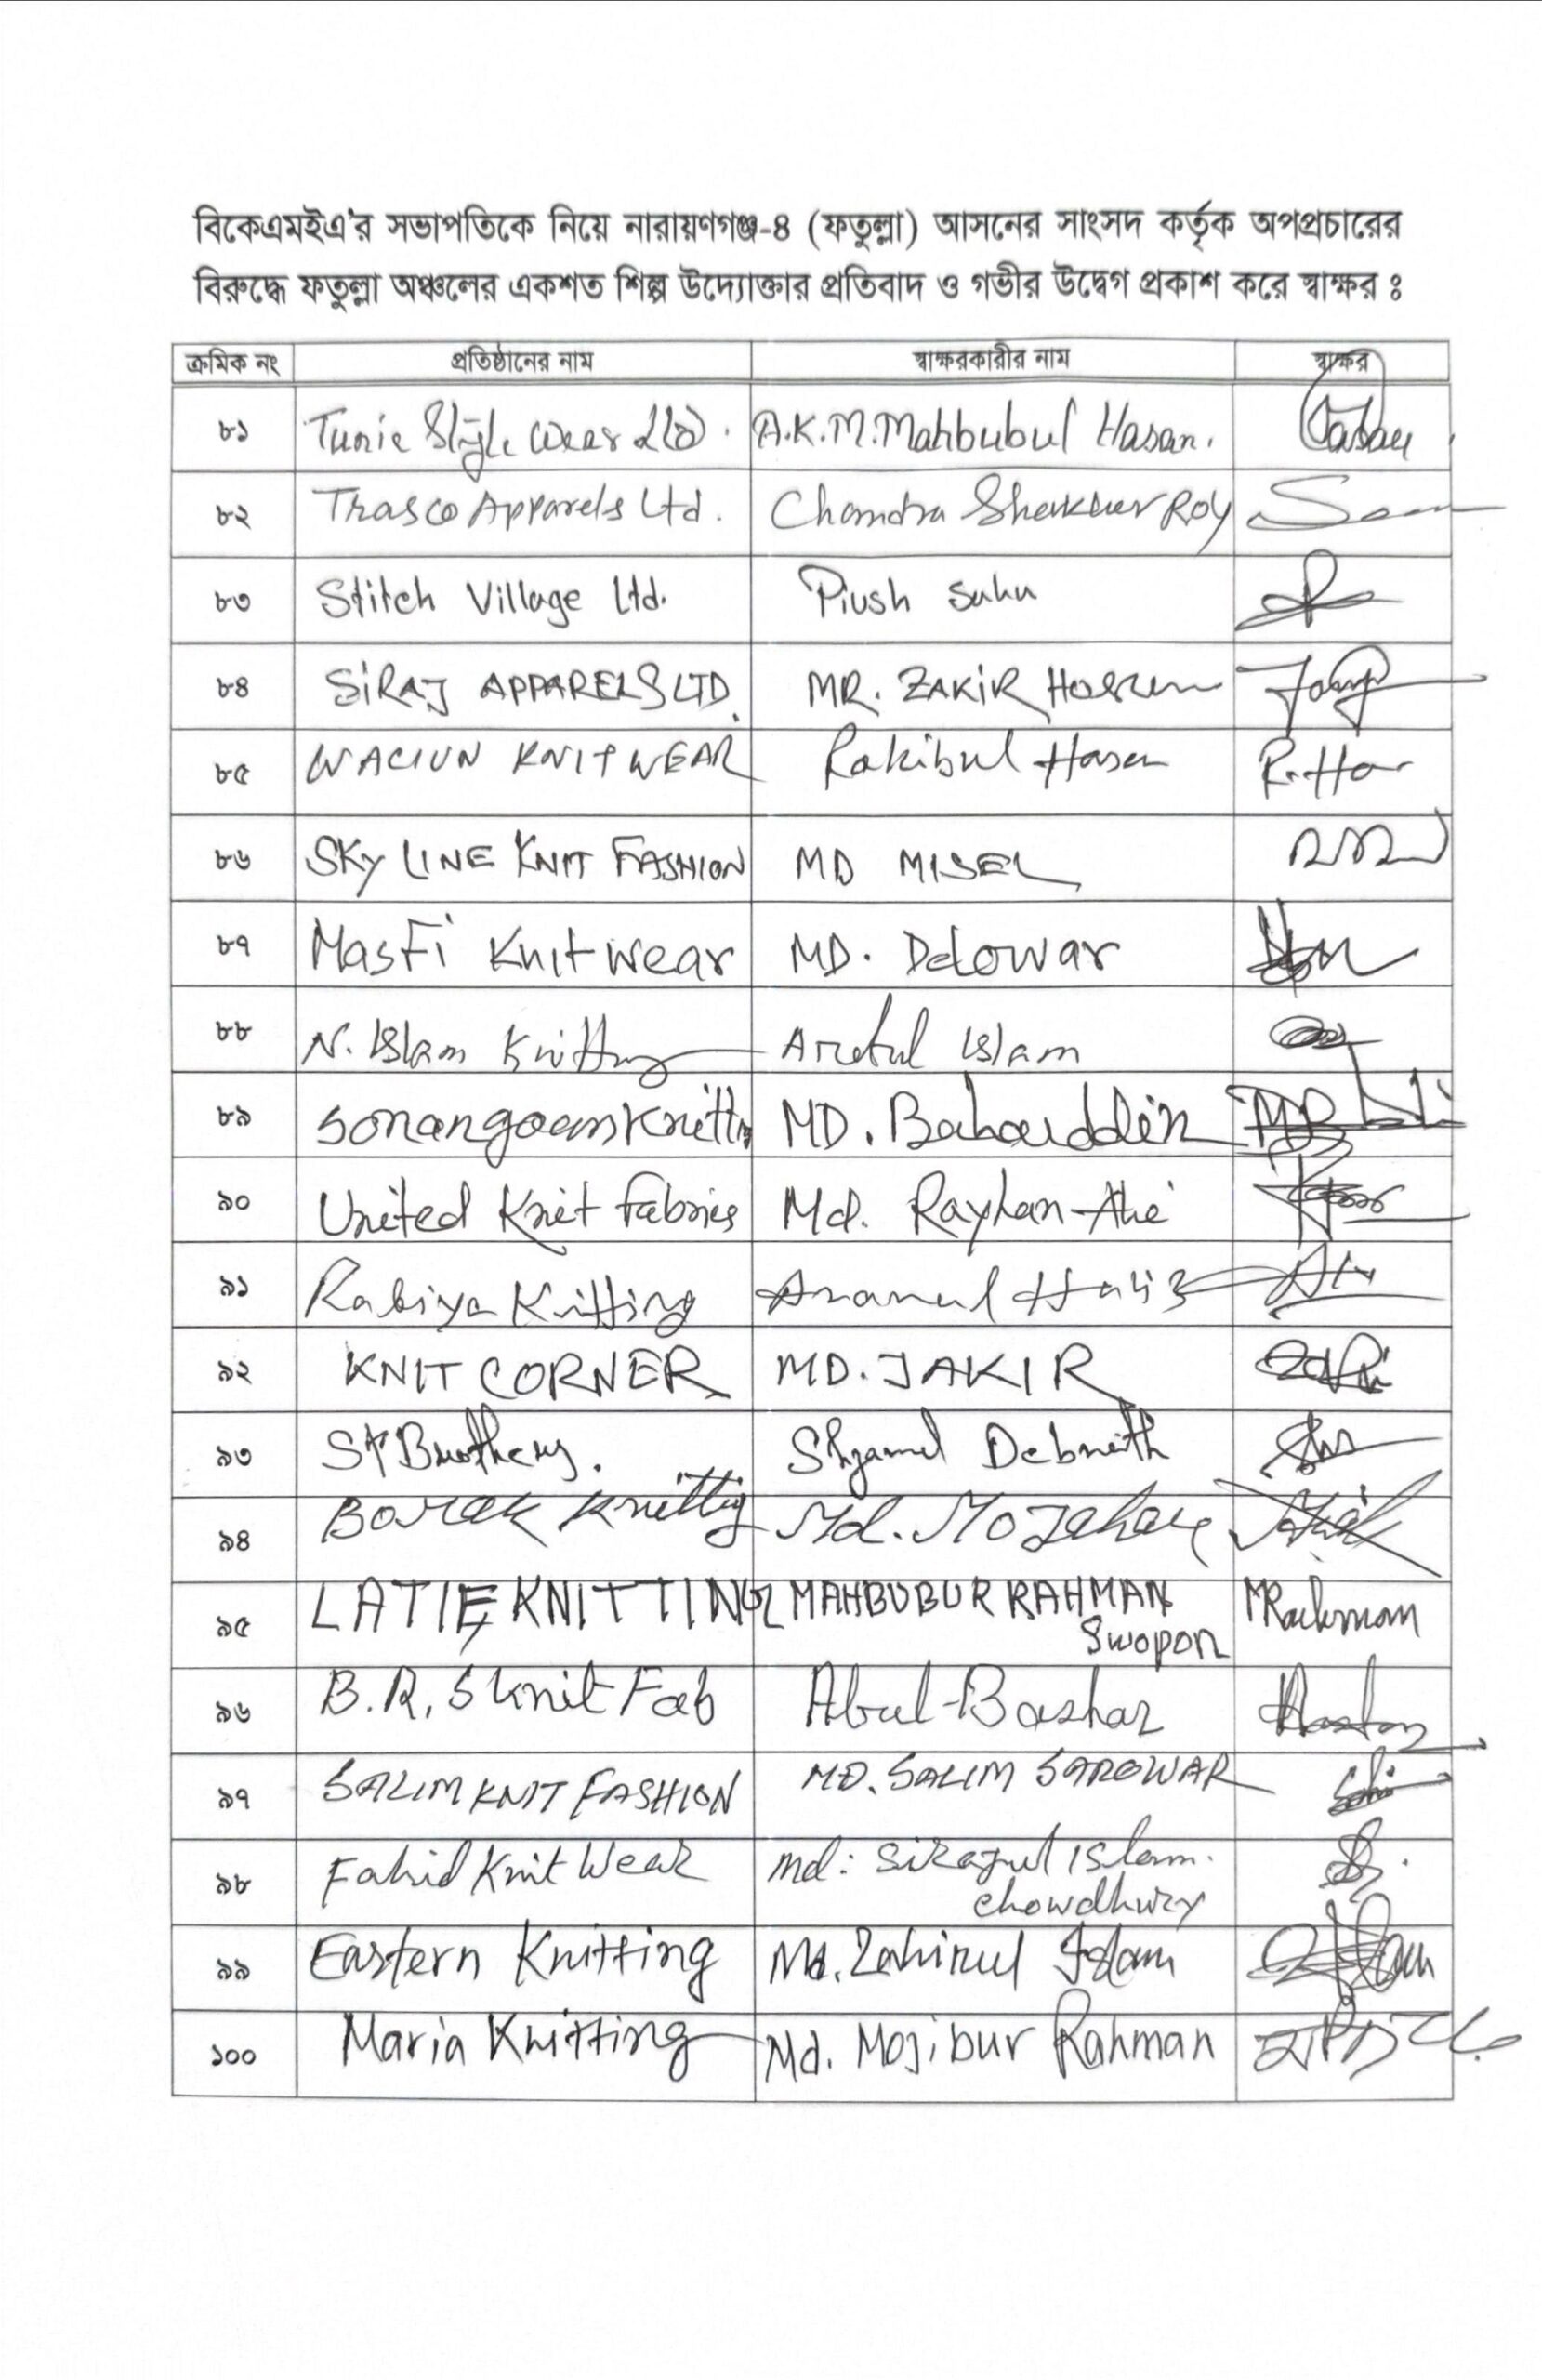 বিকেএমইএ'র সভাপতিকে নিয়ে নারায়ণগঞ্জ-৪ (ফতুল্লা) আসনের সাংসদ কর্তৃক অপপ্রচারের
বিরুদ্ধে ফতুল্লা অঞ্চলের একশত শিল্প উদ্যোক্তার প্রতিবাদ ও গভীর উদ্বেগ প্রকাশ করে স্বাক্ষর ঃ
ক্রমিক নং প্রতিষ্ঠানের নাম স্বাক্ষরকারীর নাম স্বাক্ষর
৮১ Tunic Style Wear Ltd. A.K.M. Mahbubul Hasan.
৮২ Thasco Apparels Ltd. Chandra Shekher Roy
৮৩ Stitch Village Ltd. Piush Saha
৮৪ SIRAJ APPARELS LTD. MR. ZAKIR Hossen
৮৫ KNITWEAR Rakibul Hasan
৮৬ SKY LINE KNIT FASHION MD MISEL
৮৭ Masfi Knit wear MD. Delowar
৮৮ N. Islam Knitting Islam
৮৯ Sonargoan Knitting MD. Bahauddin
৯০ United Knit Fabrics Md. Rayhan
৯১ Rabiya Knitting
৯২ KNIT CORNER MD. JAKIR
৯৩ Brothers. Shyamal Debnath
৯৪ Knittig Md.
৯৫ LATIF KNITTING MAHBUBUR RAHMAN MRahman
Swopon
৯৬ B.R.S Knit Fab Abul Bashar
৯৭ SALIM KNIT FASHION MD. SALIM SAROWAR
৯৮ Fahid Knit Wear Md: Sirajul Islam.
chowdhury
৯৯ Eastern Knitting Md. Zahirul Islam
১০০ Maria Knitting Md. Mojibur Rahman